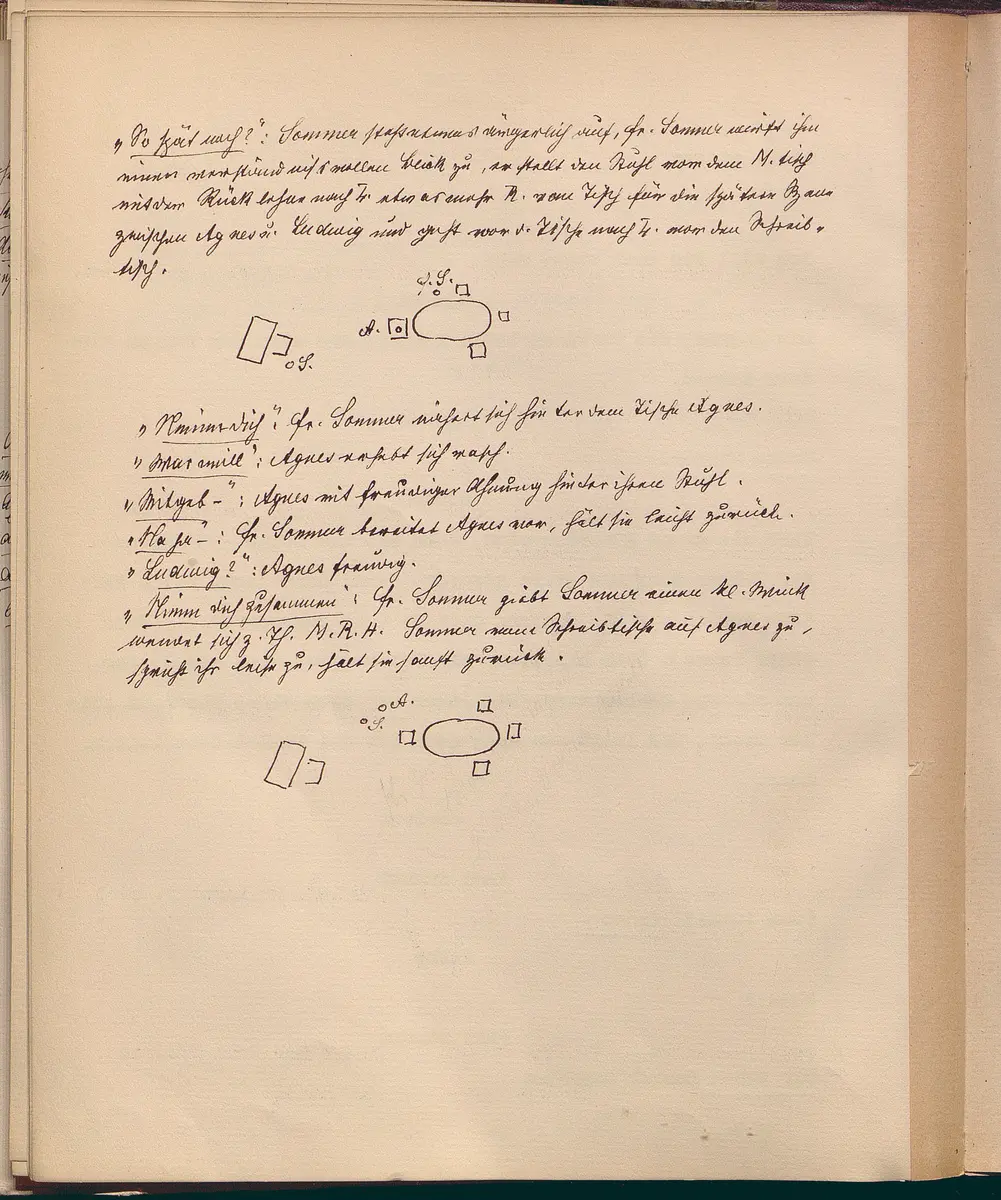 „So spät noch?“: Sommer steht etwas ärgerlich auf, Fr. Sommer wirft ihm
einen verständnisvollen Blick zu, er stellt den Stuhl vor dem M. tisch
mit der Rücklehne nach L. etwas mehr R. vom Tisch für die spätere Szene
zwischen Agnes u. Ludwig und geht vor d. Tische nach L. vor den Schreib-
tisch.
f. S.
A.
S.
„Nimm dich“: Fr. Sommer nähert sich hinter dem Tische Agnes.
„War will“: Agnes erhebt sich rasch.
„Mitgeb–“: Agnes mit freudiger Ahnung hinter ihren Stuhl.
„Na ja–: Fr. Sommer bereitet Agnes vor, hält sie leicht zurück.
„Ludwig?“: Agnes freudig.
„Nimm dich zusammen“: Fr. Sommer giebt Sommer einen kl. Wink
wendet sich z. Th. M. R. H. Sommer vom Schreibtische auf Agnes zu,
spricht ihr leise zu, hält sie sanft zurück.
A.
S.